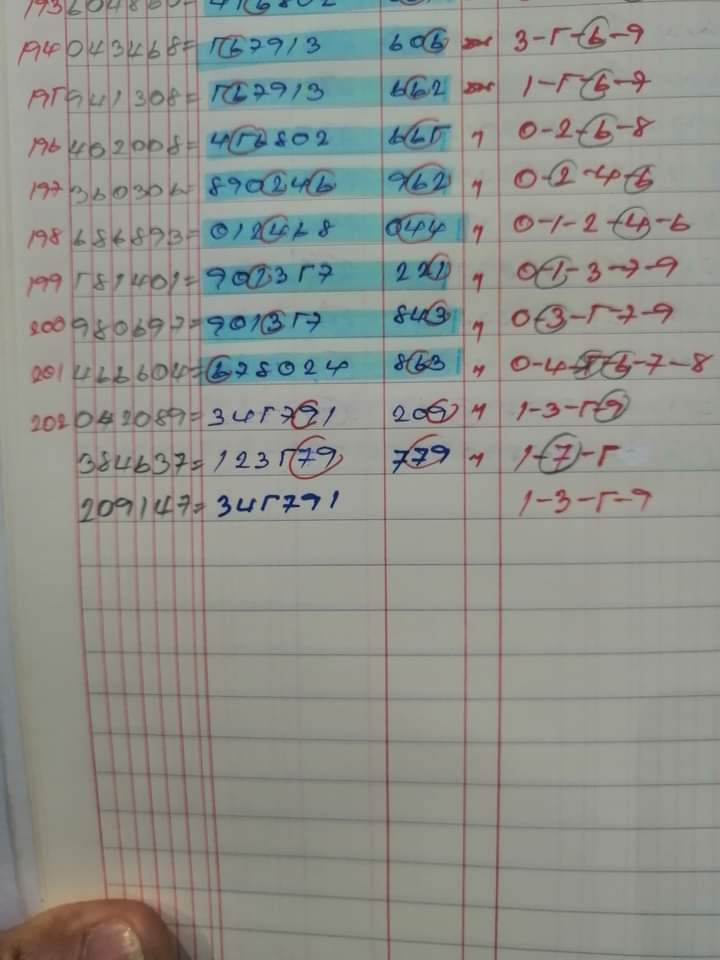 193 604860= 416802
194 043468= 567913 606 " 3-5-6-9
195 941308= 567913 662 " 1-5-6-9
196 402008= 456802 665 " 0-2-6-8
197 360306= 890246 962 " 0-2-4-6
198 686893= 012468 044 " 0-1-2-4-6
199 581401= 902357 221 " 0-1-3-7-9
200 980697= 901357 843 " 0-3-5-7-9
201 466604= 678024 863 " 0-4-5-6-7-8
202 042089= 345791 209 " 1-3-5-9
384637= 123579 779 " 1-7-5
209147= 345791 1-3-5-9